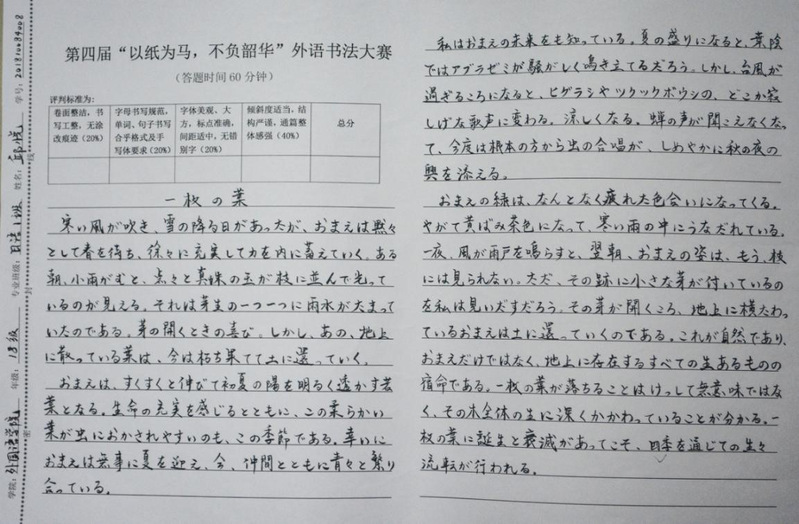 第四届“以纸为马，不负韶华”外语书法大赛
（答题时间60分钟）
评判标准为：
卷面整洁，书写工整，无涂改痕迹（20%）
字母书写规范，单词、句子书写合乎格式及手写体要求（20%）
字体美观、大方，标点准确，间距适中，无错别字（20%）
倾斜度适当，结构严谨，通篇整体感强（40%）
总分
一枚の葉
寒い風が吹き、雪の降る日があったが、おまえは黙々
として春を待ち、徐々に充実して力を内に蓄えていく。ある
朝、小雨がむと、点々と真珠の玉が枝に並んで光って
いるのが見える。それは芽生の一つ一つに雨水が大まって
いたのである。芽の開くときの喜び。しかし、あの、地上
に散っている葉は、今は朽ち果てて土に還っていく。
おまえは、すくすくと伸びて初夏の陽を明るく透かす若
葉となる。生命の充実を感じるとともに、この柔らかい
葉が虫におかされやすいのも、この季節である。幸いに
おまえは無事に夏を迎え、今、仲間とともに青々と繁り
合っている。
私はおまえの未来をも知っている。夏の盛りになると、葉陰
ではアブラゼミが騒がしく鳴き立てるだろう。しかし、台風が
過ぎるころになると、ヒグラシやツクツクボウシの、どこか寂
しげな歌声に変わる。涼しくなる。蝉の声が聞こえなくなっ
て、今度は根本の方から虫の合唱が、しめやかに秋の夜の
興を添える。
おまえの緑は、なんとなく疲れた色合いになってくる。
やがて黄ばみ茶色になって、寒い雨の中にうなだれている。
一夜、風が雨戸を鳴らすと、翌朝、おまえの姿は、もう、枝
には見られない。ただ、その跡に小さな芽が付いているの
を私は見いだすだろう。その芽が開くころ、地上に横たわっ
ているおまえは土に還っていくのである。これが自然であり、
おまえだけではなく、地上に存在するすべての生あるものの
宿命である。一枚の葉が落ちることはけっして無意味ではな
く、その木全体の生に深くかかわっていることが分かる。一
枚の葉に誕生と衰滅があってこそ、四季を通じての生々
流転が行われる。
学院：外国语学院
年级：18级
专业班级：日语1班
姓名：
学号：
密
封
线